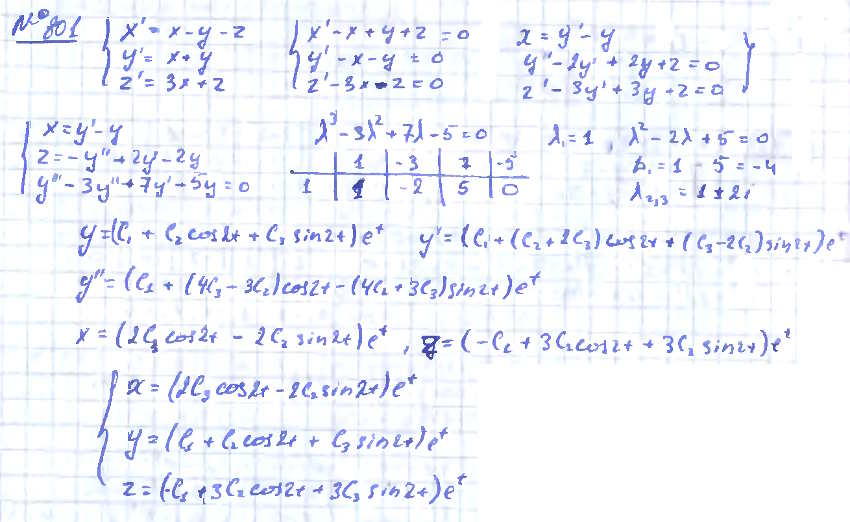 №801 { x' = x - y - z { x' - x + y + z = 0 x = y' - y }
y' = x + y y' - x - y = 0 y'' - 2y' + 2y + z = 0
z' = 3x + z z' - 3x - z = 0 z' - 3y' + 3y - z = 0
{ x = y' - y λ³ - 3λ² + 7λ - 5 = 0 λ₁ = 1 , λ² - 2λ + 5 = 0
z = -y'' + 2y' - 2y 1 -3 7 -5 D₁ = 1 - 5 = -4
y''' - 3y'' + 7y' - 5y = 0 1 1 -2 5 0 λ₂,₃ = 1 ± 2i
y = (C₁ + C₂ cos2t + C₃ sin2t)eᵗ y' = (C₁ + (C₂ + 2C₃)cos2t + (C₃ - 2C₂)sin2t)eᵗ
y'' = (C₁ + (4C₃ - 3C₂)cos2t - (4C₂ + 3C₃)sin2t)eᵗ
x = (2C₃ cos2t - 2C₂ sin2t)eᵗ , z = (-C₁ + 3C₂cos2t + 3C₃ sin2t)eᵗ
{ x = (2C₃cos2t - 2C₂sin2t)eᵗ
y = (C₁ + C₂cos2t + C₃ sin2t)eᵗ
z = (-C₁ + 3C₂cos2t + 3C₃ sin2t)eᵗ